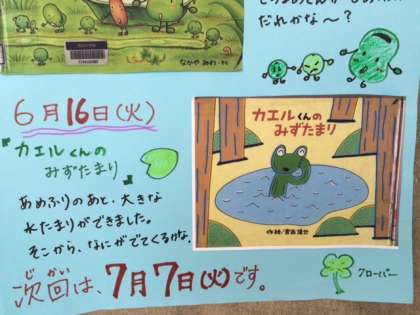 だれかな〜？
なかやみわ・さく
6月16日(火)
『カエルくんの
みずたまり』
あめふりのあと、大きな
水たまりができました。
そこから、なにがでてくるかな。
カエルくんの
みずたまり
クローバー
じかい
次回は、7月7日(火)です。